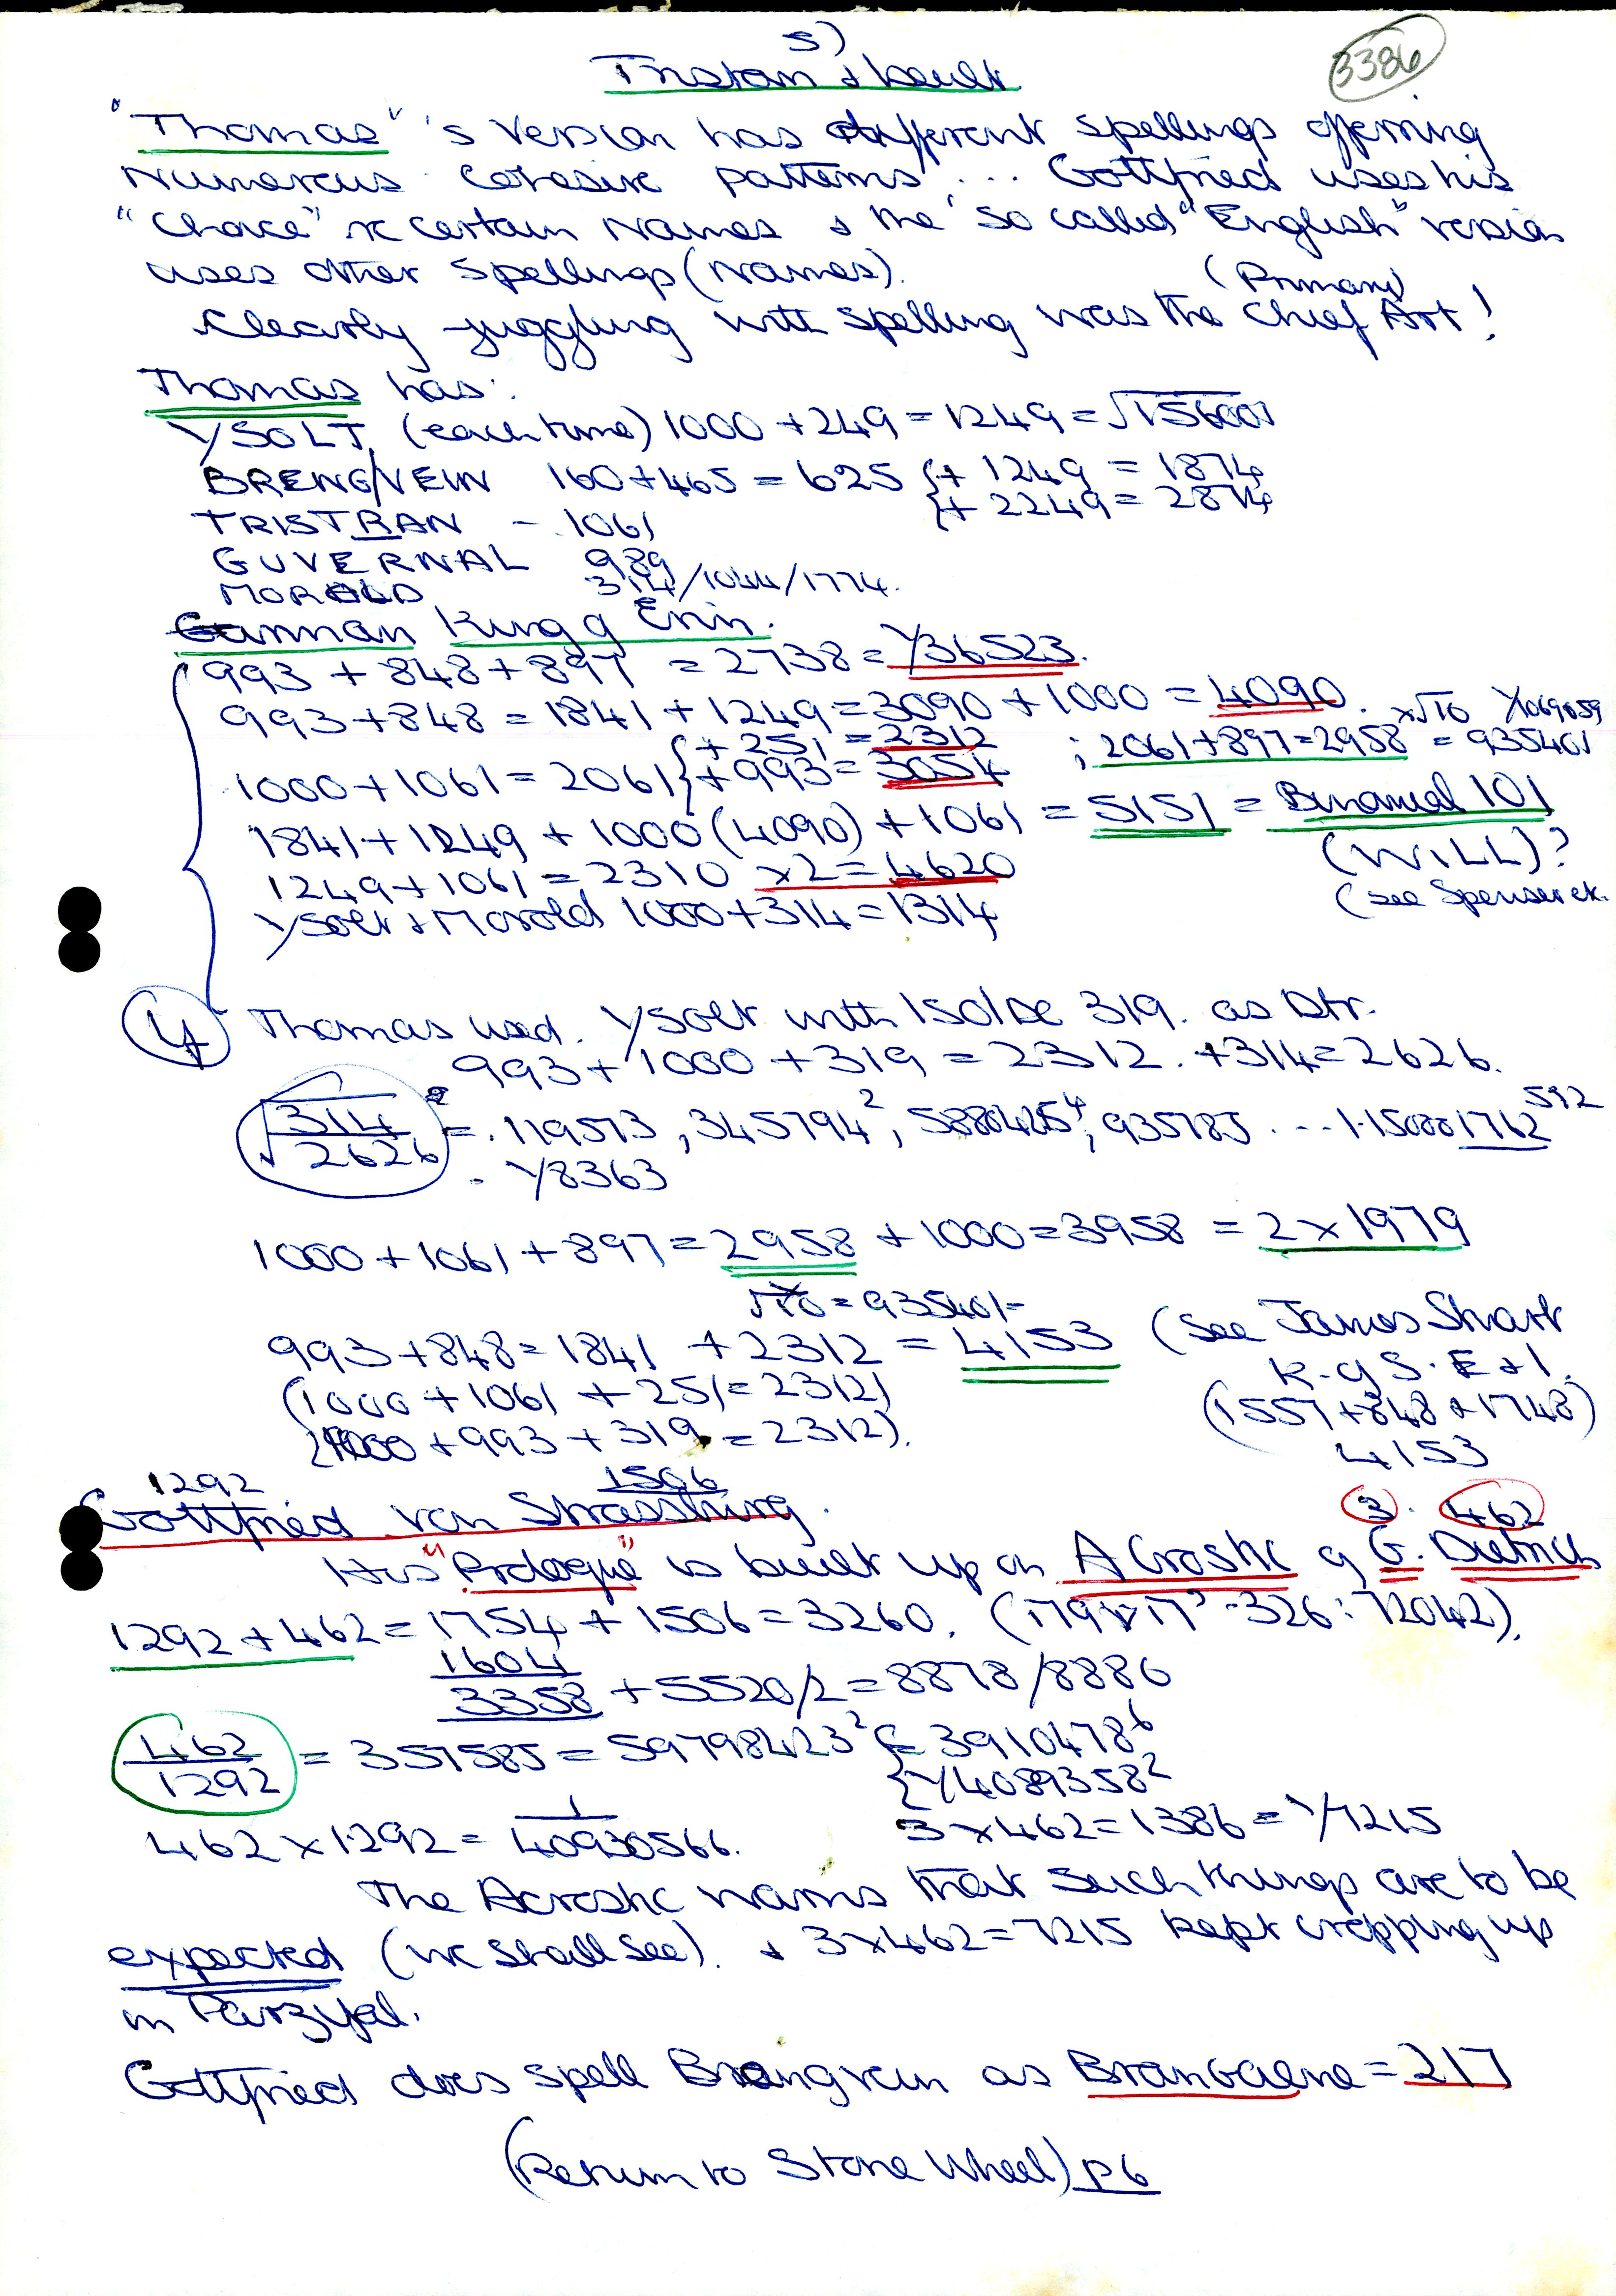 5)
3386
Tristan & Iseult
"Thomas"'s version has different spellings offering
Numerous cohesive patterns ... Gottfried uses his
"Choice" of certain Names & the so called "English" version
uses other spellings (Names).
(Primary)
Clearly juggling with spelling was the Chief Art!
Thomas has:
YSOLT (each time) 1000 + 249 = 1249 = √156001
BRENG/VEIN 160 + 465 = 625 {+ 1249 = 1874
{+ 2249 = 2874
TRISTRAN - 1061
GUVERNAL 989
MOROLD 314/1044/1774.
Gurman King of Erin.
993 + 848 + 897 = 2738 = Y36523.
993 + 848 = 1841 + 1249 = 3090 + 1000 = 4090.
x√10 Y1069059
1000 + 1061 = 2061 {+ 251 = 2312 ; 2061 + 897 = 2958 = 935401
{+ 993 = 3054
1841 + 1249 + 1000 (4090) + 1061 = 5151 = Binomial 101
(WILL)?
1249 + 1061 = 2310 x2 = 4620
(see Spenser etc.
Ysolt & Morold 1000 + 314 = 1314
4 Thomas used Ysolt with Isolde 319. as Dtr.
993 + 1000 + 319 = 2312. + 314 = 2626.
√314/2626 = .119573, 345794², 5880425⁴, 935785 ... 1.150001762⁵¹²
= Y8363
1000 + 1061 + 897 = 2958 + 1000 = 3958 = 2 x 1979
x√10 = 935401-
993 + 848 = 1841 + 2312 = 4153 (See James Stuart
K. of S. E & I.
(1000 + 1061 + 251 = 2312) (1557 + 848 + 1748)
(1000 + 993 + 319 = 2312). 4153
1292 1506
Gottfried von Strassburg.
3. 462
His "Prologue" is built up on A Crostic of G. Dietrich
1292 + 462 = 1754 + 1506 = 3260. (179 17³ = 326: 72042).
1604
3358 + 5520/2 = 8878/8880
462/1292 = 357585 = 59798423² {= 39104786
{Y4089358²
462 x 1292 = 1/40930566. 3 x 462 = 1386 = Y7215
The Acrostic warns that such things are to be
expected (we shall see). & 3 x 462 = 7215 kept cropping up
in Parzyfal.
Gottfried does spell Brengvein as Brangaene = 217
(Return to Stone Wheel) p6